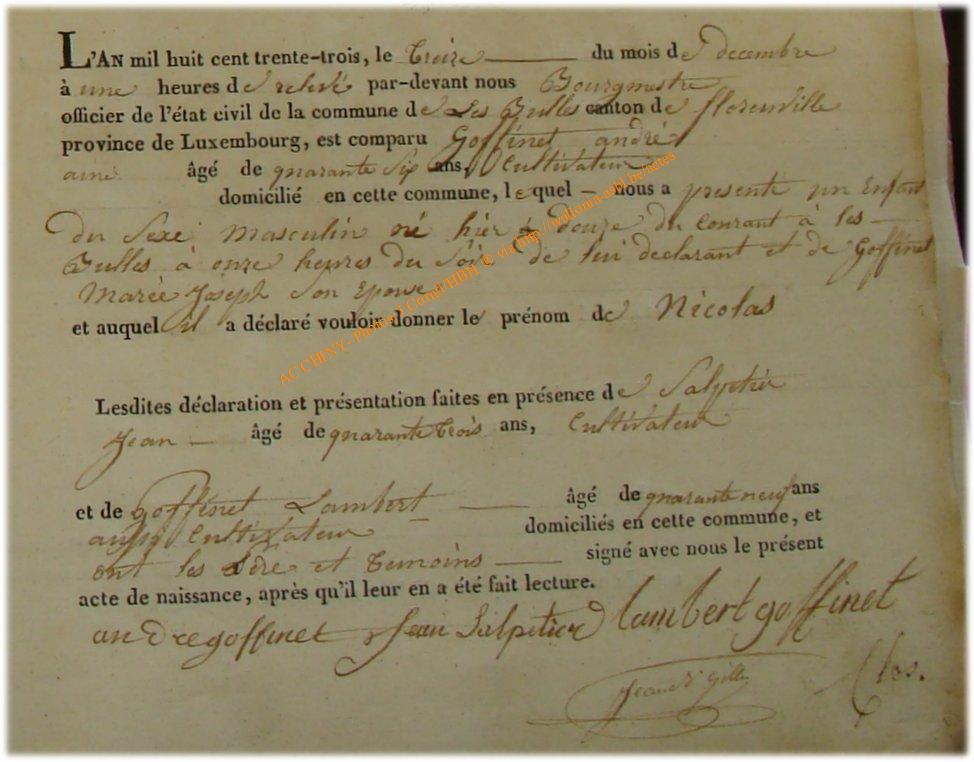 L'AN mil huit cent trente-trois, le treize du mois de decembre
à une heures de relevé par-devant nous Bourgmestre
officier de l'état civil de la commune de Les Bulles canton de florenville
province de Luxembourg, est comparu Goffinet andré
ainé âgé de quarante Six ans, Cultivateur
domicilié en cette commune, lequel nous a presenté un Enfant
du Sexe masculin né hier douze du Courant à les
Bulles à onze heures du Soir de lui declarant et de Goffinet
Marie Joseph Son Epouse
et auquel il a déclaré vouloir donner le prénom de Nicolas
AC CHINY- Photos J Comt/HBH © via http://wallonia-asbl.be/actes
Lesdites déclaration et présentation faites en présence de Salpetier
Jean âgé de quarante trois ans, Cultivateur
et de Goffinet Lambert âgé de quarante neuf ans
aussy Cultivateur domiciliés en cette commune, et
ont les Père et temoins signé avec nous le présent
acte de naissance, après qu'il leur en a été fait lecture.
andregoffinet Jean Salpetier lambert goffinet
Clos.